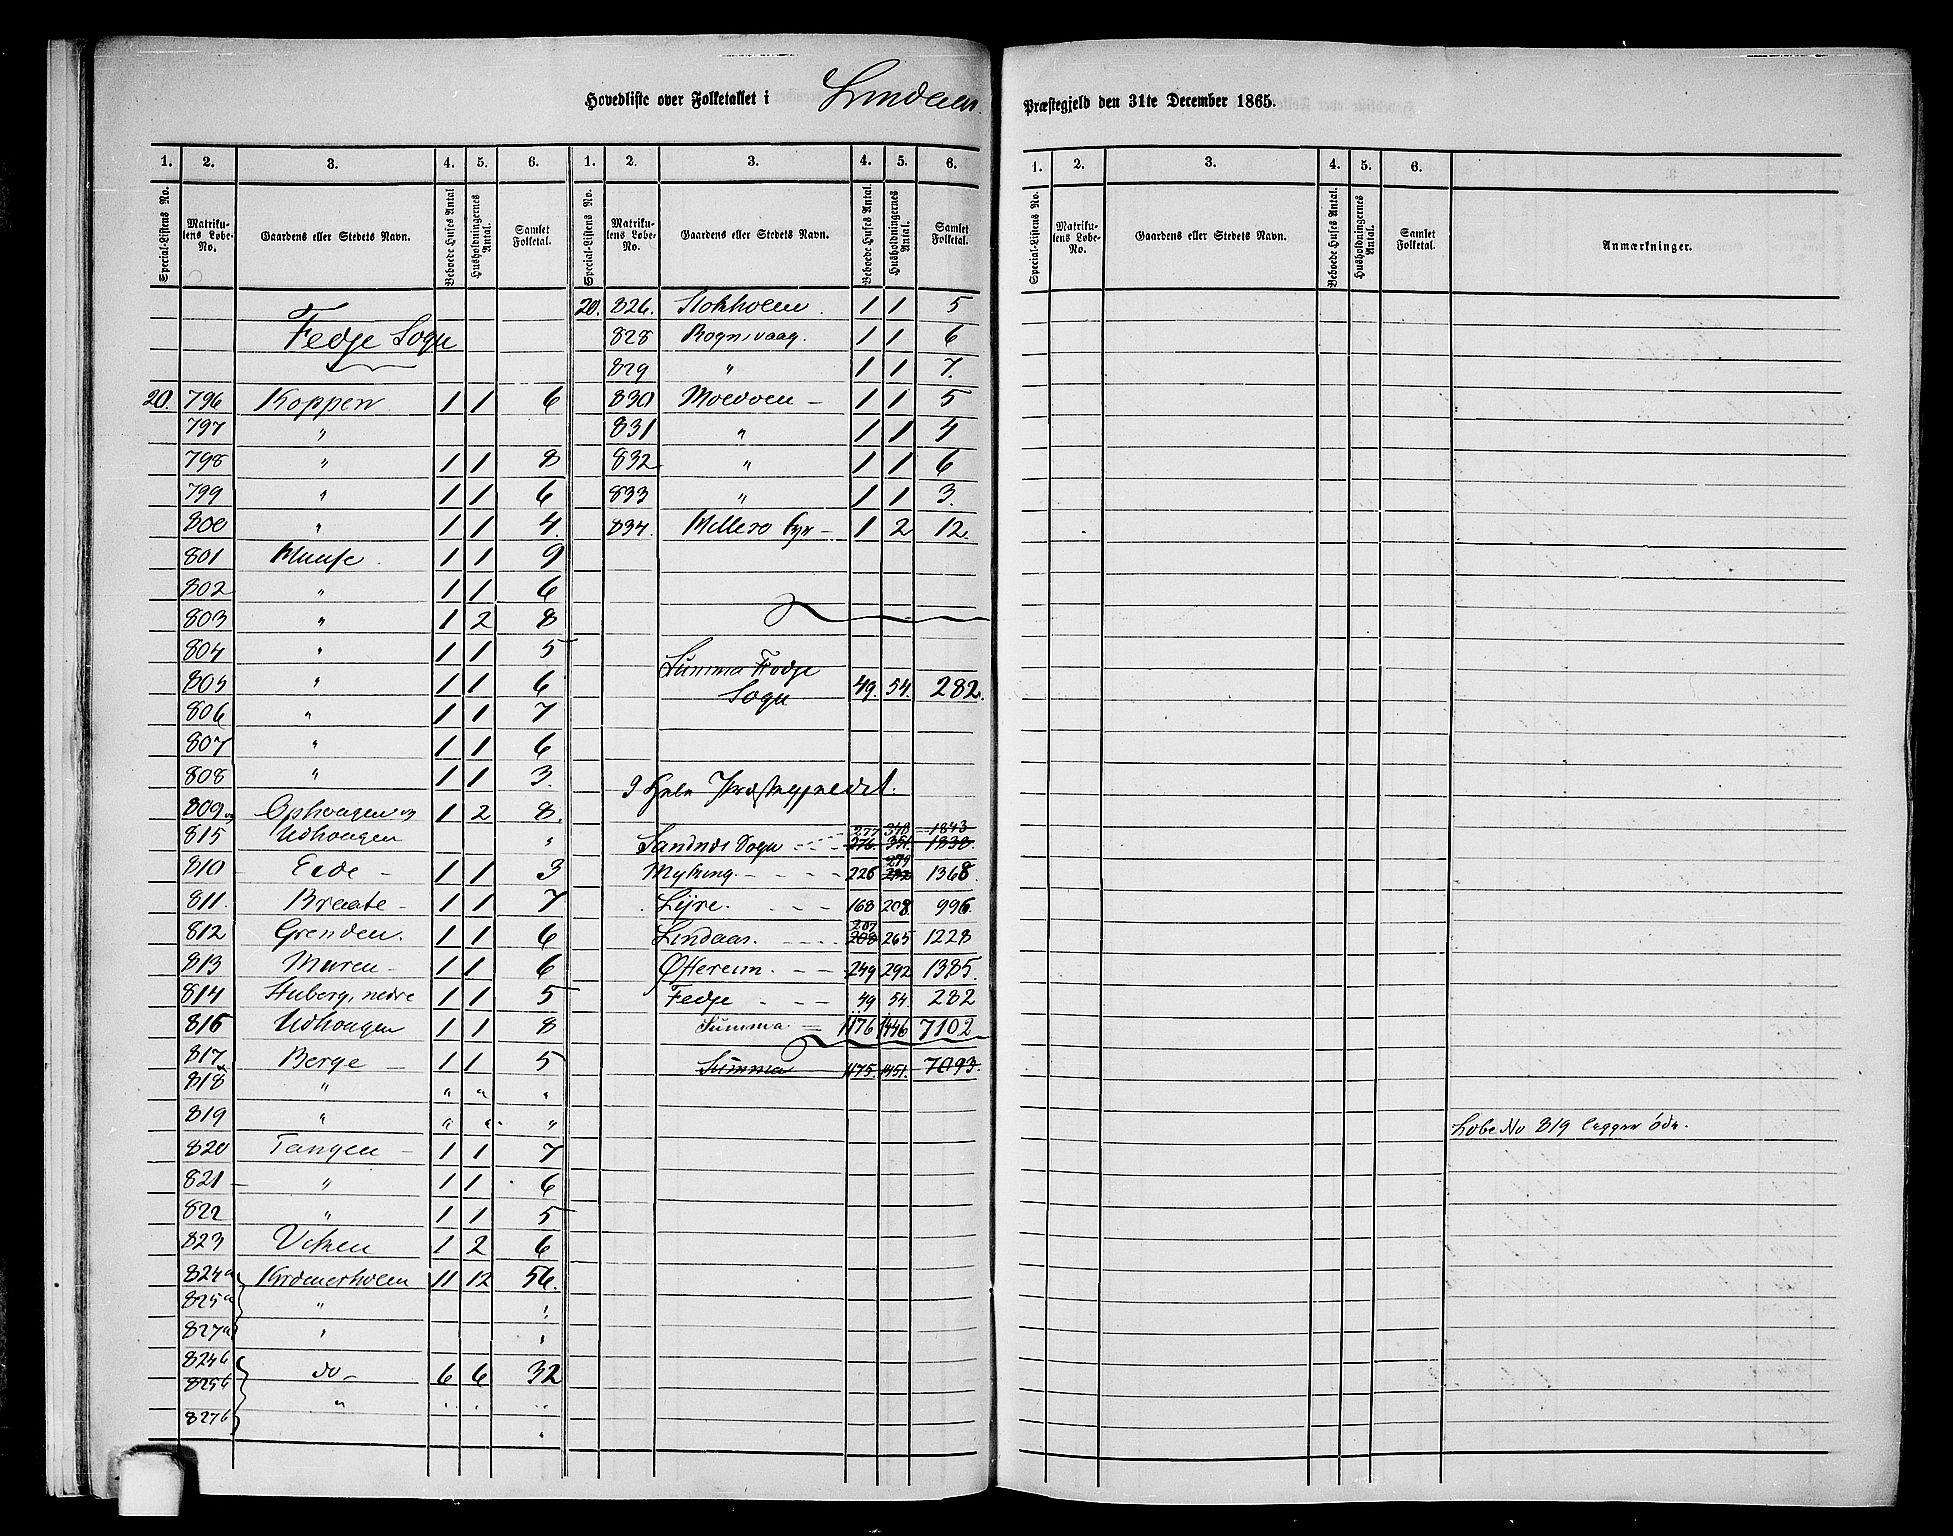 Hovedliste over Folketallet i Lindaas Præstegjeld den 31te December 1865.
1. 2. 3. 4. 5. 6. 1. 2. 3. 4. 5. 6. 1. 2. 3. 4. 5. 6.
Special-Listens No. Matrikulens Løbe-No. Gaardens eller Stedets Navn. Beboede Huses Antal Husholdningernes Antal. Samlet Folketal. Special-Listens No. Matrikulens Løbe-No. Gaardens eller Stedets Navn. Beboede Huses Antal. Husholdningernes Antal. Samlet Folketal. Special-Listens No. Matrikulens Løbe-No. Gaardens eller Stedets Navn. Beboede Huses Antal. Husholdningernes Antal. Samlet Folketal. Anmærkninger.
Fedje Sogn
20. 796 Koppen 1 1 6
797 "
798 " 1 1 8
799 " 1 1 6
800 " 1 1 4.
801 1 1 9
802 " 1 1 6
803 " 1 2 8
804 " 1 1 5
805 " 1 1 6
806 " 1 1 7
807 " 1 1 6
808 " 1 1 3.
809 og Ophougen og 1 2 8.
815 Udhougen "
810 Eide - 1 1 3
811. Braate - 1 1 7
812 Grenden. 1 1 6
813 Muren - 1 1 6
814 Stuberg, nedre 1 1 5
816 Udhougen 1 1 8
817 Berge - 1 1 5
818 " " " "
819 " " " "
820 Tangen - 1 1 7
821 - " 1 1 6
822 " 1 1 5
823 Viken 1 2 6
824a Kræmerholm 11 12 56.
825a "
827a "
824b do - 6 6 32
825b
827b "
20. 826. Stokholm. 1 1 5
828 Rognsvaag. 1 1 6
829 " 1 1 7.
830 Moldøen - 1 1 5
831 " 1 1 4
832 " 1 1 6
833 " 1 1 3.
834. Hellesø Fyr - 1 2 12.
Summa Fedje
Sogn 49. 54. 282.
I hele Præstegjeldet.
277 348 1843
Sandnes Sogn 276. 351. 1838.
279
Myking. 226 282 1368.
Lyre. 168 208. 996.
207
Lindaas. 208 265 1228
Østreim. 249 292 1385.
Fedje 49 54. 282
Summa 1176 1446 7102
Summa 1175. 1451. 7093.
Løbe No 819 ligger øde.